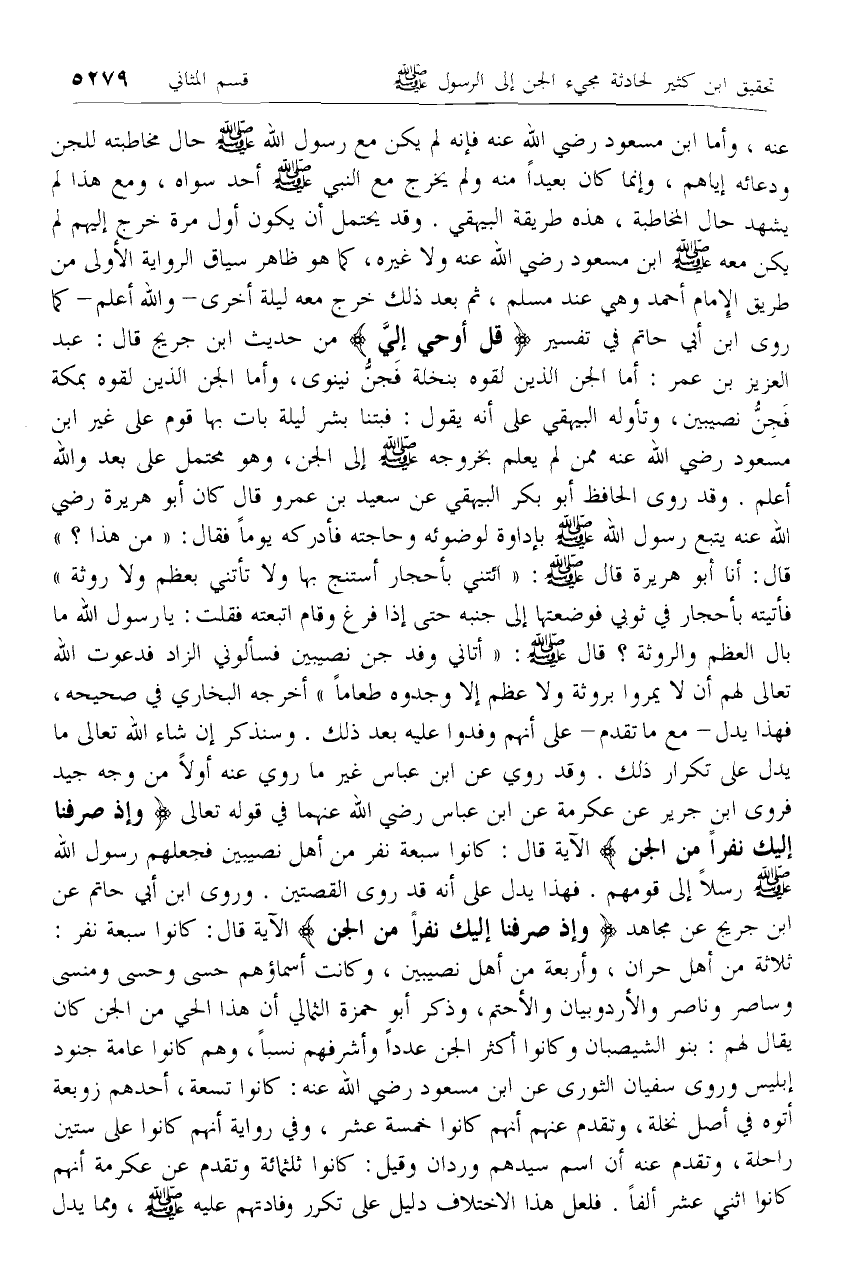 تحقيق ابن كثير لحادثة مجيء الجن إلى الرسول ﷺ قسم المثاني ٥٢٧٩
عنه ، وأما ابن مسعود رضي الله عنه فإنه لم يكن مع رسول الله ﷺ حال مخاطبته للجن
ودعائه إياهم ، وإنما كان بعيداً منه ولم يخرج مع النبي ﷺ أحد سواه ، ومع هذا لم
يشهد حال المخاطبة ، هذه طريقة البيهقي . وقد يحتمل أن يكون أول مرة خرج إليهم لم
يكن معه ﷺ ابن مسعود رضي الله عنه ولا غيره، كما هو ظاهر سياق الرواية الأولى من
طريق الإمام أحمد وهي عند مسلم ، ثم بعد ذلك خرج معه ليلة أخرى – والله أعلم – كما
روى ابن أبي حاتم في تفسير ﴿ قل أوحي إليَّ ﴾ من حديث ابن جريج قال : عبد
العزيز بن عمر : أما الجن الذين لقوه بنخلة فَجنُّ نينوى، وأما الجن الذين لقوه بمكة
فَجِنُّ نصيبين، وتأوله البيهقي على أنه يقول : فبتنا بشر ليلة بات بها قوم على غير ابن
مسعود رضي الله عنه ممن لم يعلم بخروجه ﷺ إلى الجن، وهو محتمل على بعد والله
أعلم . وقد روى الحافظ أبو بكر البيهقي عن سعيد بن عمرو قال كان أبو هريرة رضي
الله عنه يتبع رسول الله ﷺ بإداوة لوضوئه وحاجته فأدركه يوماً فقال: « من هذا ؟ »
قال: أنا أبو هريرة قال ﷺ : « ائتني بأحجار أستنج بها ولا تأتني بعظم ولا روثة »
فأتيته بأحجار في ثوبي فوضعتها إلى جنبه حتى إذا فرغ وقام اتبعته فقلت: يارسول الله ما
بال العظم والروثة ؟ قال ﷺ : « أتاني وفد جن نصيبين فسألوني الزاد فدعوت الله
تعالى لهم أن لا يمروا بروثة ولا عظم إلا وجدوه طعاماً » أخرجه البخاري في صحيحه،
فهذا يدل – مع ماتقدم – على أنهم وفدوا عليه بعد ذلك . وسنذكر إن شاء الله تعالى ما
يدل على تكرار ذلك . وقد روي عن ابن عباس غير ما روي عنه أولاً من وجه جيد
فروى ابن جرير عن عكرمة عن ابن عباس رضي الله عنهما في قوله تعالى ﴿ وإذ صرفنا
إليك نفراً من الجن ﴾ الآية قال : كانوا سبعة نفر من أهل نصيبين فجعلهم رسول الله
ﷺ رسلاً إلى قومهم . فهذا يدل على أنه قد روى القصتين . وروى ابن أبي حاتم عن
ابن جريج عن مجاهد ﴿ وإذ صرفنا إليك نفراً من الجن ﴾ الآية قال: كانوا سبعة نفر :
ثلاثة من أهل حران ، وأربعة من أهل نصيبين ، وكانت أسماؤهم حسى وحسى ومنسى
وساصر وناصر والأردوبيان والأحتم، وذكر أبو حمزة الثمالي أن هذا الحي من الجن كان
يقال لهم : بنو الشيصبان وكانوا أكثر الجن عدداً وأشرفهم نسباً، وهم كانوا عامة جنود
إبليس وروى سفيان الثورى عن ابن مسعود رضي الله عنه: كانوا تسعة، أحدهم زوبعة
أتوه في أصل نخلة، وتقدم عنهم أنهم كانوا خمسة عشر ، وفي رواية أنهم كانوا على ستين
راحلة، وتقدم عنه أن اسم سيدهم وردان وقيل: كانوا ثلثمائة وتقدم عن عكرمة أنهم
كانوا اثني عشر ألفاً . فلعل هذا الاختلاف دليل على تكرر وفادتهم عليه ﷺ ، ومما يدل